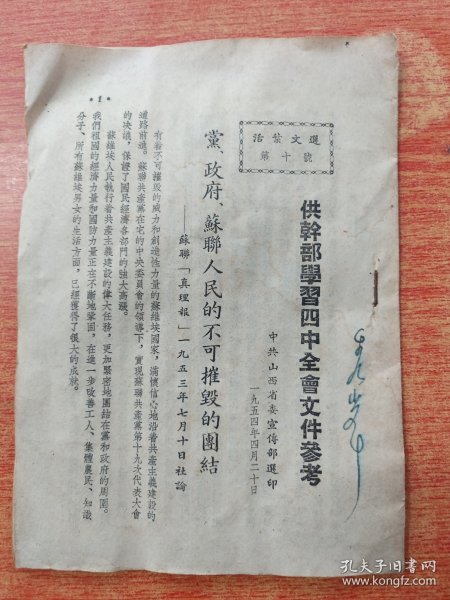 活葉文選
第十號
供幹部學習四中全會文件參考
中共山西省委宣傳部選印
一九五四年四月二十日
黨、政府、蘇聯人民的不可摧毀的團結
——蘇聯「真理報」一九五三年七月十日社論
有着不可摧毀的威力和創造性力量的蘇維埃國家，滿懷信心地沿着共產主義建設的
道路前進。蘇聯共產黨在它的中央委員會的領導下，實現蘇聯共產黨第十九次代表大會
的決議，保證了國民經濟各部門的強大高漲。
蘇維埃人民執行着共產主義建設的偉大任務，更加緊密地團結在黨和政府的周圍。
我們祖國的經濟力量和國防力量正在不斷地鞏固，在進一步改善工人、集體農民、知識
分子、所有蘇維埃男女的生活方面，已經獲得了很大的成就。
•1•
孔夫子旧書网
www.kongfz.com